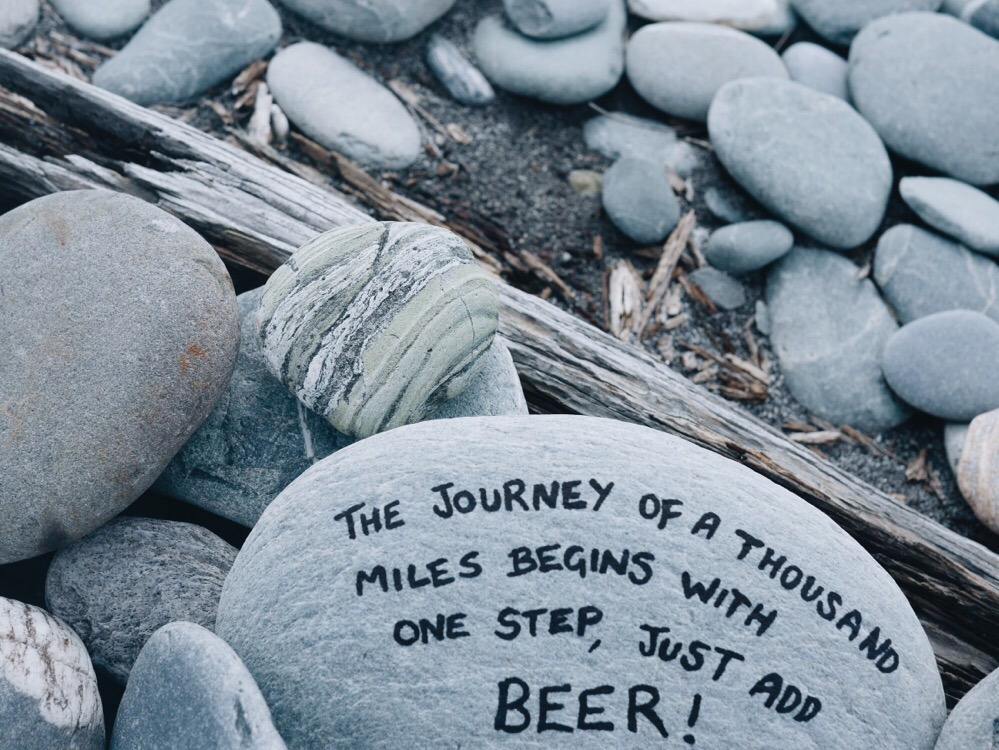 THE JOURNEY OF A THOUSAND
MILES BEGINS WITH
ONE STEP, JUST ADD
BEER!